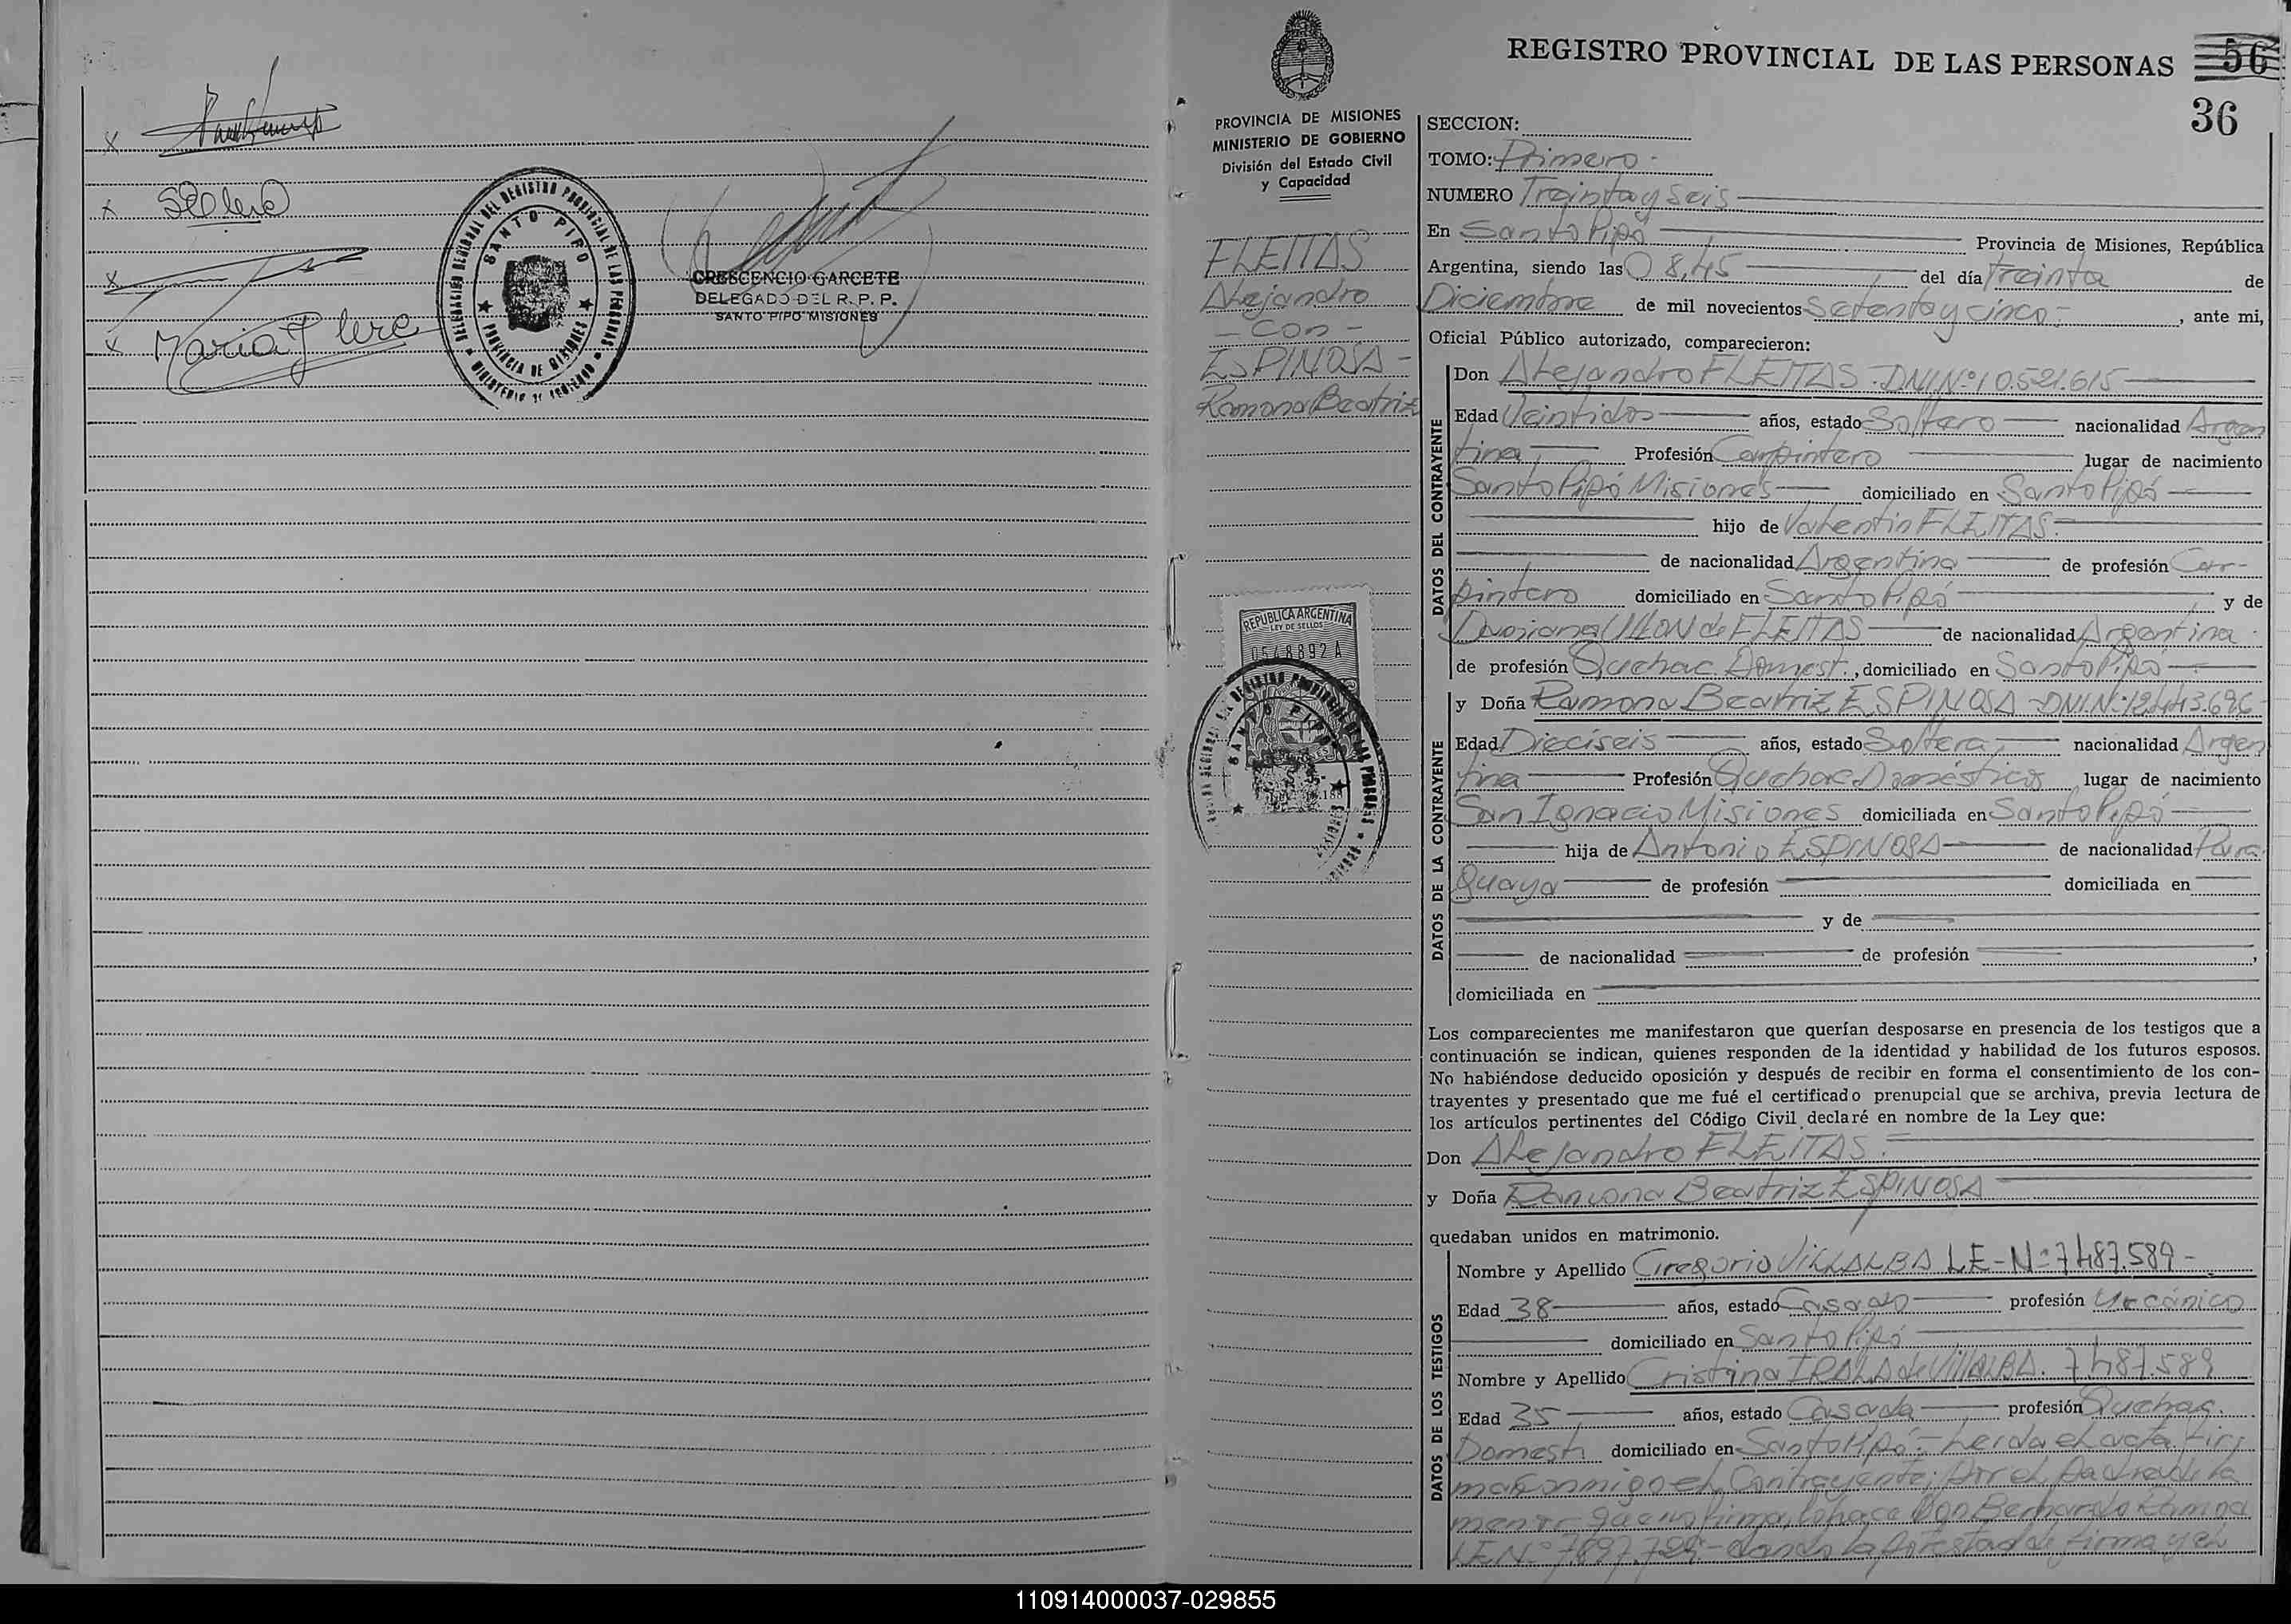 María J lere
SANTO PIPO
PROVINCIA DE MISIONES
CRESCENCIO GARCETE
DELEGADO DEL R. P. P.
SANTO PIPO MISIONES
REGISTRO PROVINCIAL DE LAS PERSONAS 56
36
PROVINCIA DE MISIONES
MINISTERIO DE GOBIERNO
División del Estado Civil
y Capacidad
FLEITAS
Alejandro
- Con -
ESPINOSA -
Ramona Beatriz
REPUBLICA ARGENTINA
LEY DE SELLOS
0548892 A
SANTO PIPO
SECCION:
TOMO: Primero -
NUMERO Treinta y Seis
En Santo Pipó Provincia de Misiones, República
Argentina, siendo las 08,45 del día Treinta de
Diciembre de mil novecientos Setenta y cinco.- , ante mi,
Oficial Público autorizado, comparecieron:
DATOS DEL CONTRAYENTE
Don Alejandro FLEITAS. DNI.Nº10.521.615
Edad Veintidos años, estado Soltero nacionalidad Argen
tina, Profesión Carpintero lugar de nacimiento
Santo Pipó Misiones domiciliado en Santo Pipó
hijo de Valentin FLEITAS.
de nacionalidad Argentina de profesión Car-
pintero domiciliado en Santo Pipó y de
de FLEITAS de nacionalidad Argentina.
de profesión Quehac. Domest., domiciliado en Santo Pipó
DATOS DE LA CONTRAYENTE
y Doña Ramona Beatriz ESPINOSA - DNI.Nº:12.443.696
Edad Dieciseis años, estado Soltera, nacionalidad Argen
tina Profesión Quehac Domésticos lugar de nacimiento
San Ignacio Misiones domiciliada en Santo Pipó
hija de Antonio ESPINOSA de nacionalidad Para
guaya de profesión domiciliada en
y de
de nacionalidad de profesión ,
domiciliada en
Los comparecientes me manifestaron que querían desposarse en presencia de los testigos que a
continuación se indican, quienes responden de la identidad y habilidad de los futuros esposos.
No habiéndose deducido oposición y después de recibir en forma el consentimiento de los con-
trayentes y presentado que me fué el certificado prenupcial que se archiva, previa lectura de
los artículos pertinentes del Código Civil declaré en nombre de la Ley que:
Don Alejandro FLEITAS.
y Doña Ramona Beatriz ESPINOSA
quedaban unidos en matrimonio.
DATOS DE LOS TESTIGOS
Nombre y Apellido Gregorio VILLALBA LE-Nº:7487.589-
Edad 38 años, estado Casado profesión Mecánico
domiciliado en Santo Pipó
Nombre y Apellido Cristina IRALA de VillALBA. 7487.589
Edad 35 años, estado Casada profesión Quehac.
Domest. domiciliado en Santo Pipó.- Leida el acta fir-
ma conmigo el Contrayente; por el padre de la
menor que no firma, lo hace Don Bernardo
LE Nº 7.897.729.- dando la potestad de firma y el
110914000037-029855